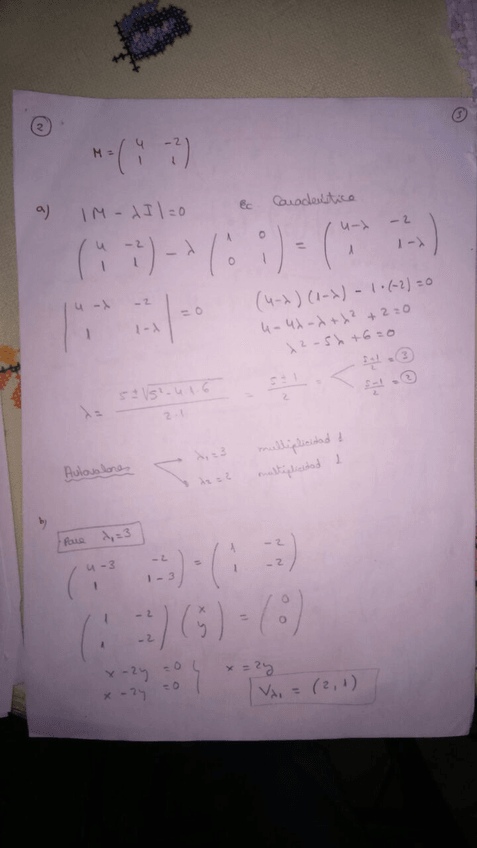 2
5
M = ( 4 -2
1 1 )
a) |M - λI| = 0 Ec Característica
( 4 -2
1 1 ) - λ ( 1 0
0 1 ) = ( 4-λ -2
1 1-λ )
| 4-λ -2
1 1-λ | = 0
(4-λ)(1-λ) - 1·(-2) = 0
4 - 4λ - λ + λ² + 2 = 0
λ² - 5λ + 6 = 0
λ = (5 ± √5² - 4·1·6) / 2·1 = 5 ± 1 / 2 = 5+1 / 2 = 3
5-1 / 2 = 2
Autovalores λ₁ = 3 multiplicidad 1
λ₂ = 2 multiplicidad 1
b)
Para λ₁ = 3
( 4-3 -2
1 1-3 ) = ( 1 -2
1 -2 )
( 1 -2
1 -2 ) ( x
y ) = ( 0
0 )
x - 2y = 0
x - 2y = 0 } x = 2y
Vλ₁ = (2, 1)